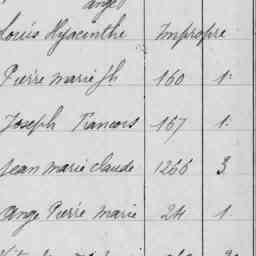 ange
Louis Hyacinthe Impropre
Pierre marie Jh 160 1.
Joseph Francois 167 1.
Jean marie claude 1266 3
ange Pierre marie 24 1.